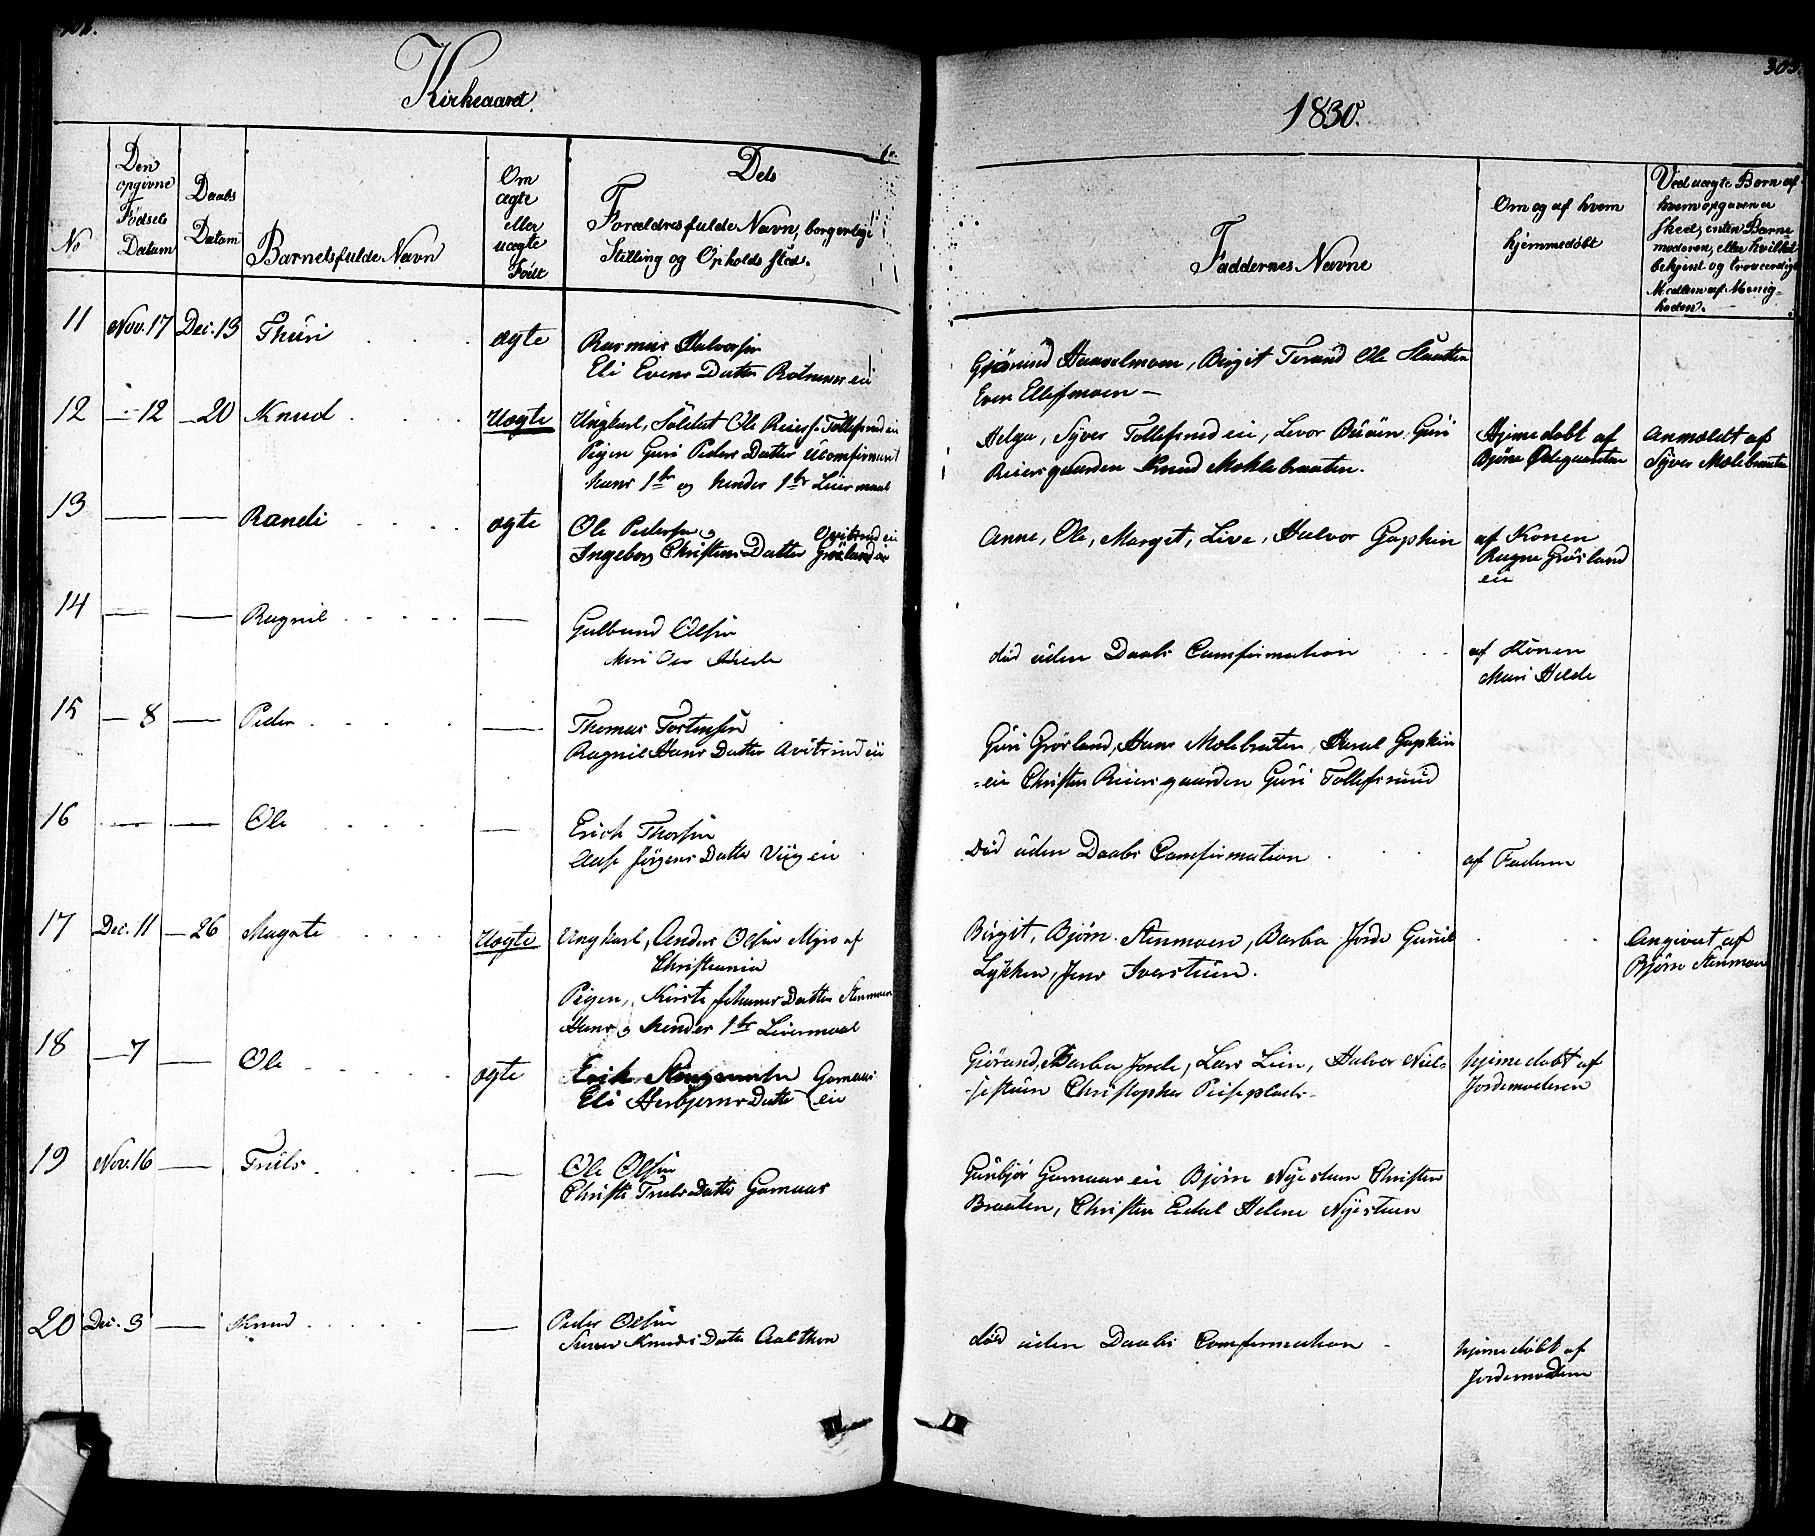 Kirkeaaret
1830.
303.
No
Den opgivne Fødsels Datum
Daabs Datum
Barnets fulde Navn
Om ægte eller uægte Født
Dets
Forældres fulde Navn, borgerlige
Stilling og Opholds sted.
Faddernes Navne
Om og af hvem
hjemmedøbt
Ved uægte Børn af
hvem opgaven er
skeed, enten Barne
moderen, eller hvilket
bekjent og troværdigt
Medlem af Menig-
heden.
11 Nov. 17 Dec. 13 Thuri ægte Rasmus Halvorsen
Eli Evens Datter eii
Birgit Ole
Even Ellefsmoen
12 — 12 — 20 Knud Uægte Ungkarl, Soldat Ole Reiers. Tollefsrud eii
Pigen Guri Peders Datter
hans 1te og hendes 1te Leiermaal
Helga, Syver Tollefsrud eii, Levor Guri
Reiersgaarden Knud Moklebraaten.
Hjemedøbt af
Bjøne Ødegaarden
Anmældt af
Syver Molebraaten
13 — — Randi ægte Ole Pedersen
Ingeborg Christens Datter Grøsland eii
Anne, Ole, Marget, Live, Halvor Gapkin
af Konen
Ragne Grøsland
eii
14 — — Ragnil — Gulbrand Olsen
Mari
død uden Daabs Comfirmation
af Konen
Mari Helde
15 — 8 — Peder — Thomas Tostensen
Ragnil Hans Datter eii
Guri Grøsland, Hans Molebraten, Gapkin
eii Christen Reiersgaarden Guri Tollefsrud
16 — — Ole — Erich Thorsen
Aase Jørgens Datter Viig eii
Død uden Daabs Comfirmation
af Faderen
17 Dec. 11 — 26 Magrete Uægte Ungkarl, Anders Olsen Myro af
Christiania
Pigen, Kirste Johannes Datter Stenmoen
Hans og hendes 1te Leiermaal
Birgit, Bjørn Stenmoen, Barbra Jorde Gunil
Lykken, Jens Iverstuen.
Angivet af
Bjørn Stenmoen
18 — 7 — Ole ægte Erik
Eli Herbjørns Datter eii
Giørand, Barbra Jorde, Lars Lien, Halvor Niel-
sestuen Christopher
hjemedøbt af
Jordemoderen
19 Nov. 16 — Truls — Ole Olsen
Christi Truls Datter Gamaas
Gunbjør Gamaas eii Bjørn Nyestuen Christen
Braaten, Christen Helene Nyestuen
20 Dec. 3 — Knud — Peder Olsen
Knuds Datter
død uden Daabs Comfirmation
hjemedøbt af
Jordemoderen